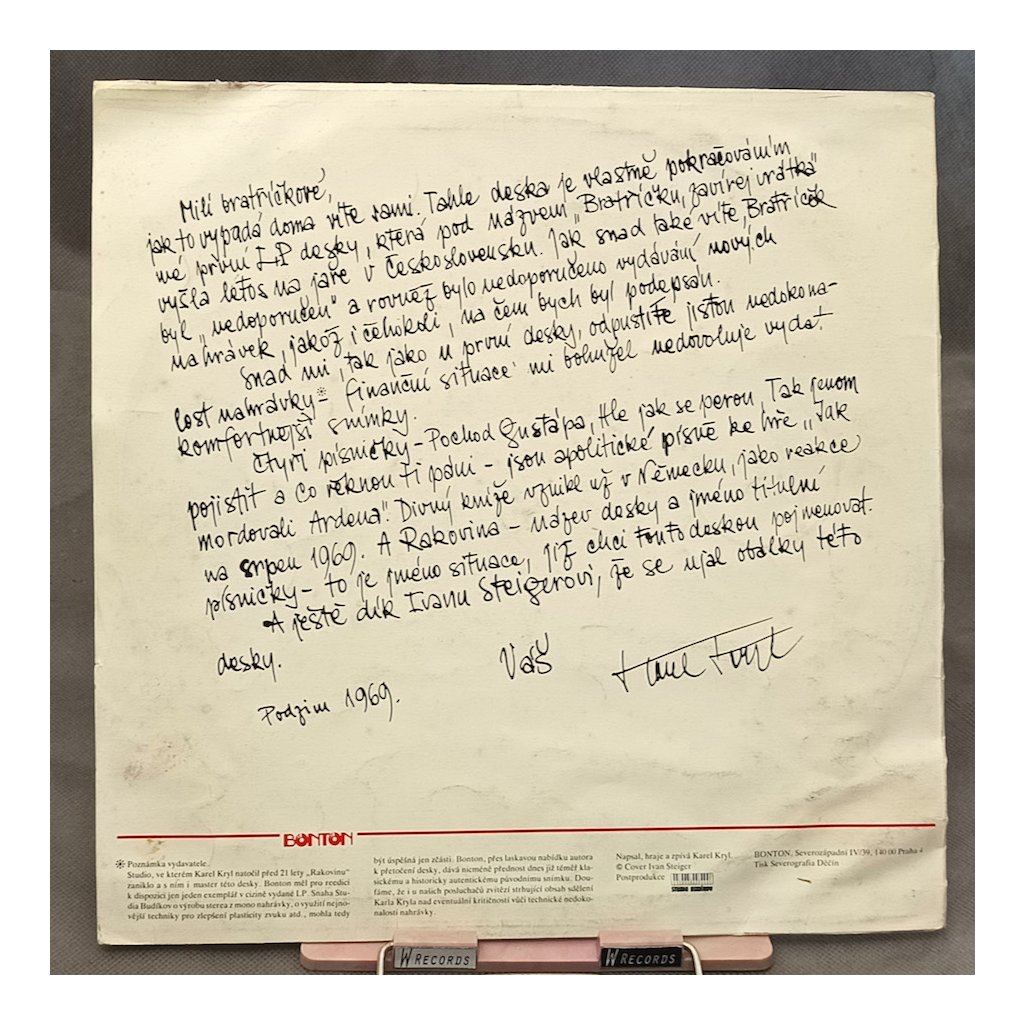 Milí bratříčkové,
jak to vypadá doma víte sami. Tahle deska je vlastně pokračováním
mé první LP desky, která pod názvem „Bratříčku, zavírej vrátka"
vyšla letos na jaře v Československu. Jak snad také víte, Bratříček
byl „nedoporučen" a rovněž bylo nedoporučeno vydávání nových
nahrávek, jakož i čehokoli, na čem bych byl podepsán.
Snad mi, tak jako u první desky, odpustíte jistou nedokona-
lost nahrávky※- finanční situace mi bohužel nedovoluje vydat
komfortnější snímky.
Čtyři písničky - Pochod Gustápa, Hle jak se perou, Tak jenom
pojistit a Co řeknou tři páni - jsou apolitické písně ke hře „Jak
mordovali Ardena". Divný kníže vznikl už v Německu, jako reakce
na srpen 1969. A Rakovina - název desky a jméno titulní
písničky - to je jméno situace, jíž chci touto deskou pojmenovat.
A ještě dík Ivanu Steigerovi, že se ujal obálky této
desky.
Váš Karel Kryl
Podzim 1969.
BONTON
※ Poznámka vydavatele.
Studio, ve kterém Karel Kryl natočil před 21 lety „Rakovinu"
zaniklo a s ním i master této desky. Bonton měl pro reedici
k dispozici jen jeden exemplář v cizině vydané LP. Snaha Stu-
dia Budíkov o výrobu sterea z mono nahrávky, o využití nejno-
vější techniky pro zlepšení plasticity zvuku atd., mohla tedy
být úspěšná jen zčásti. Bonton, přes laskavou nabídku autora
k přetočení desky, dává nicméně přednost dnes již téměř kla-
sickému a historicky autentickému původnímu snímku. Dou-
fáme, že i u našich posluchačů zvítězí strhující obsah sdělení
Karla Kryla nad eventuální kritičností vůči technické nedoko-
nalosti nahrávky.
Napsal, hraje a zpívá Karel Kryl.
© Cover Ivan Steiger
Postprodukce
STUDIO BUDÍKOV
BONTON, Severozápadní IV/39, 140 00 Praha 4
Tisk Severografia Děčín
W RECORDS
W RECORDS